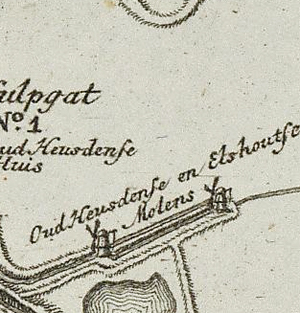 ulpgat
No. 1
ud Heusdense
Huis
Oud Heusdense en Elshoutse
Molens